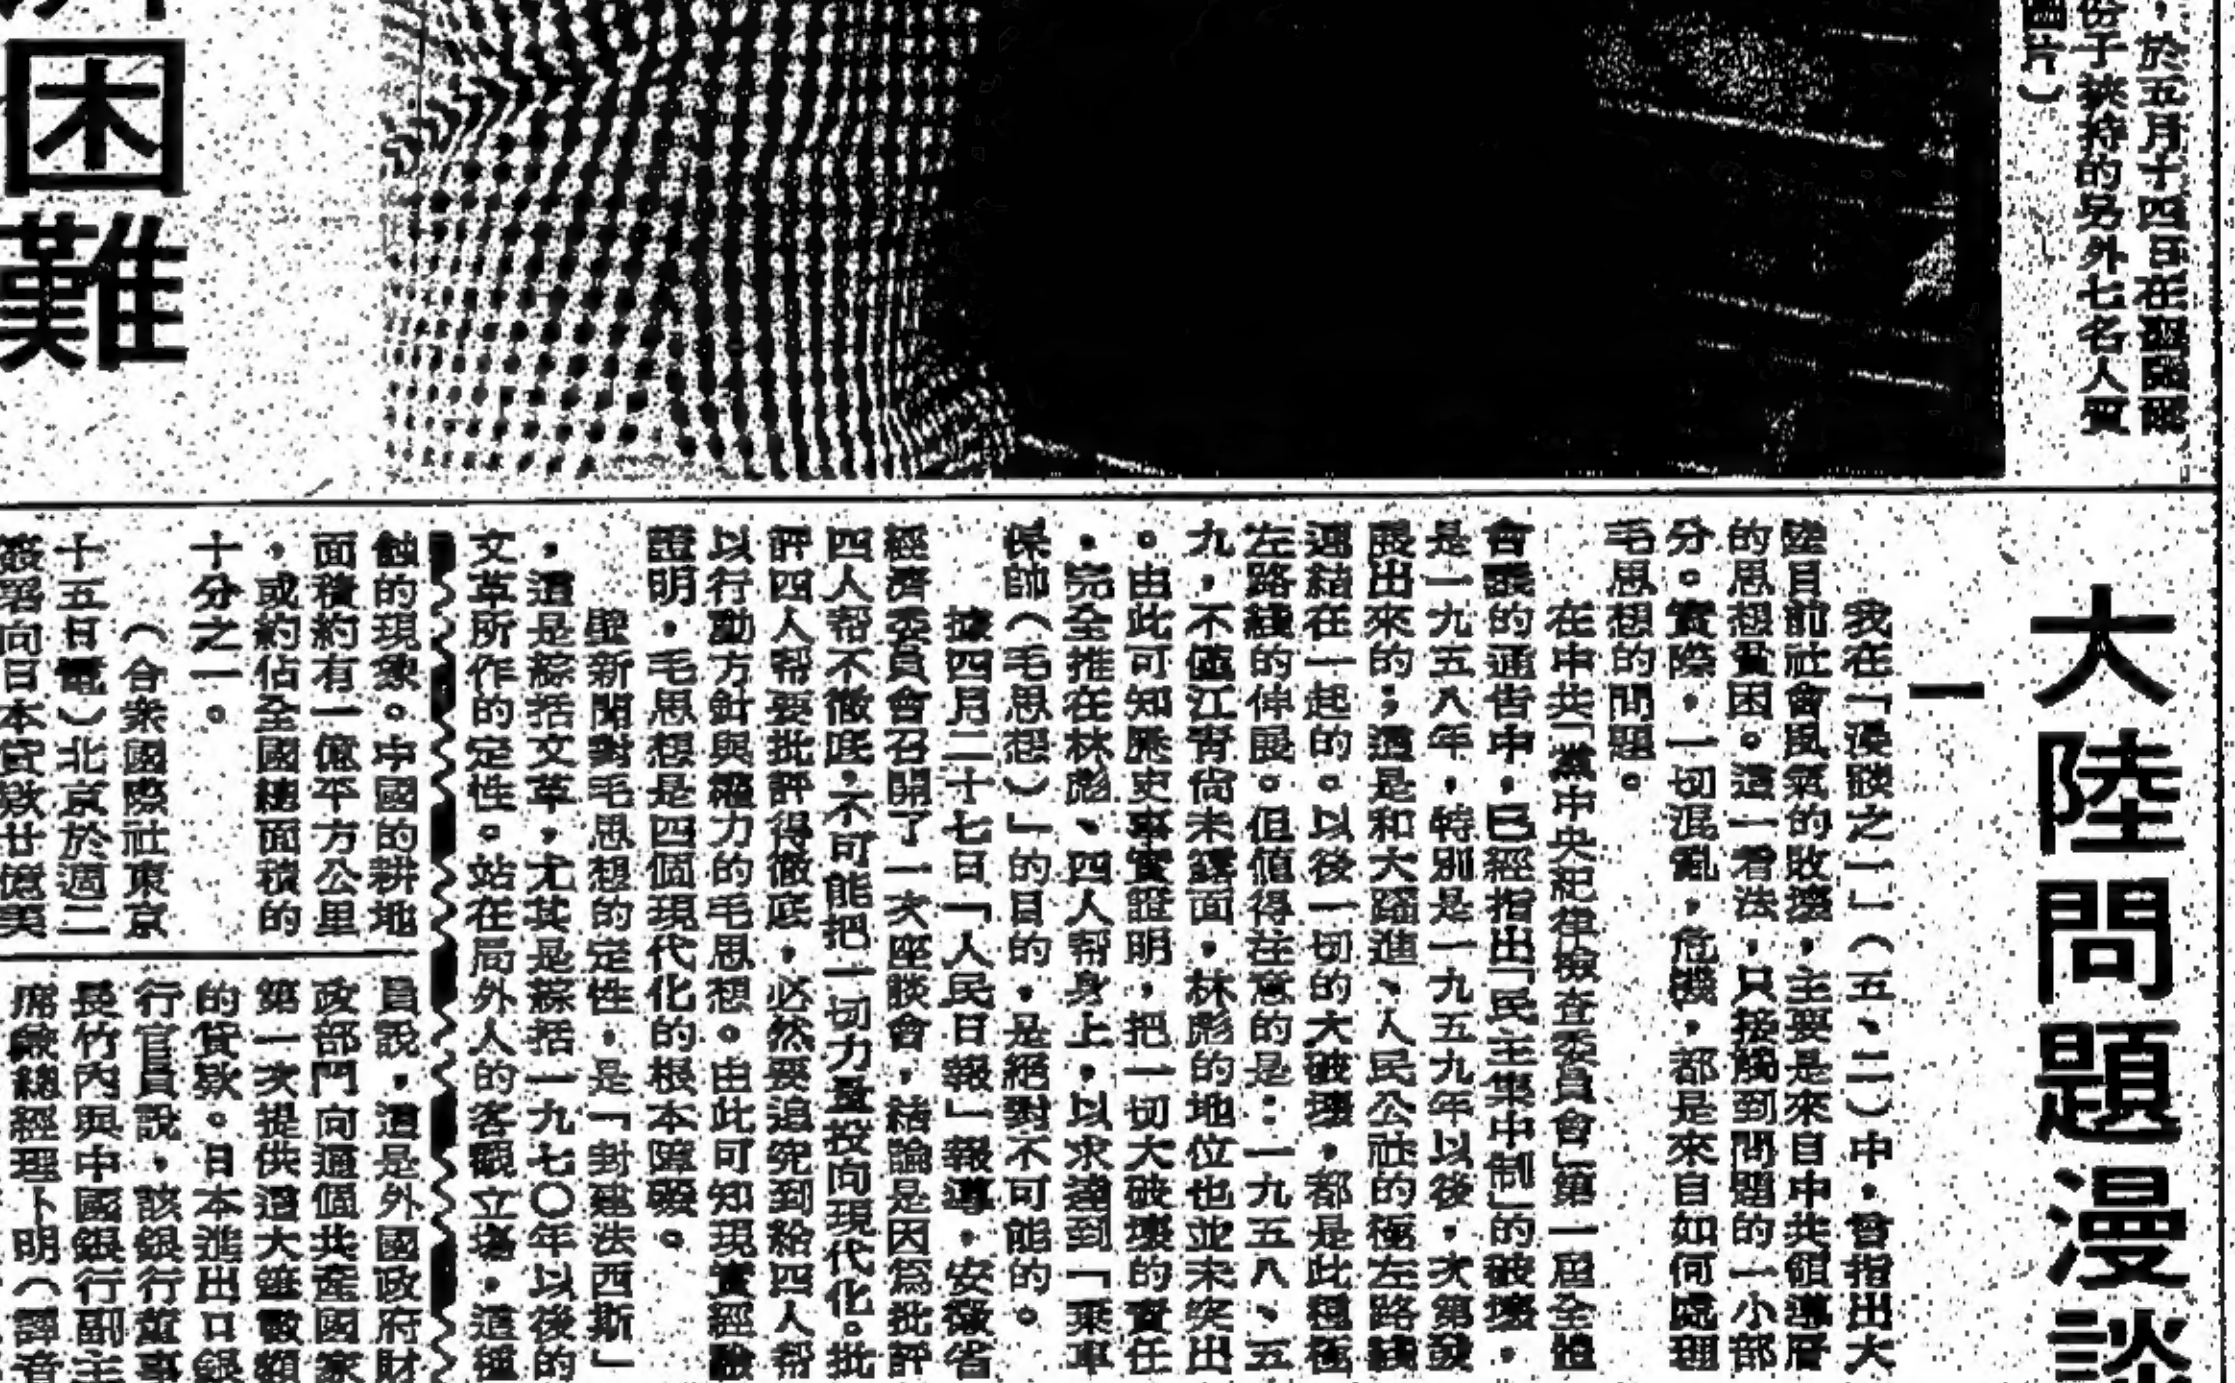 ，於五月十四日在
份子挾持的另外七名人質
圖片）
困難
大陸問題漫談
一
我在「漫談之一」（五、二）中，曾指出大
陸目前社會風氣的敗壞，主要是來自中共領導層
的思想貧困。這一看法，只接觸到問題的一小部
分。實際，一切混亂，危機，都是來自如何處理
毛思想的問題。
在中共「黨中央紀律檢查委員會」第一屆全體
會議的通告中，已經指出「民主集中制」的破壞，
是一九五八年，特別是一九五九年以後，次第發
展出來的；這是和大躍進、人民公社的極左路綫
連結在一起的。以後一切的大破壞，都是此種極
左路綫的伸展。但值得注意的是：一九五八、五
九，不僅江青尚未露面，林彪的地位也並未突出
。由此可知歷史事實證明，把一切大破壞的責任
，完全推在林彪、四人幫身上，以求達到「棄車
保帥（毛思想）」的目的，是絕對不可能的。
據四月二十七日「人民日報」報導，安徽省
經濟委員會召開了一次座談會，結論是因爲批評
四人幫不徹底，不可能把一切力量投向現代化。批
評四人幫要批評得徹底，必然要追究到給四人幫
以行動方針與權力的毛思想。由此可知現實經驗
證明，毛思想是四個現代化的根本障礙。
壁新聞對毛思想的定性，是「封建法西斯」
，這是綜括文革，尤其是綜括一九七〇年以後的
文革所作的定性。站在局外人的客觀立場，這種
蝕的現象。中國的耕地
面積約有一億平方公里
，或約佔全國總面積的
十分之一。
（合衆國際社東京
十五日電）北京於週二
簽署向日本貸款廿億美
員說，這是外國政府財
政部門向這個共產國家
第一次提供這大筆數額
的貸款。日本進出口銀
行官員說，該銀行董事
長竹內與中國銀行副主
席兼總經理卜明（譯音